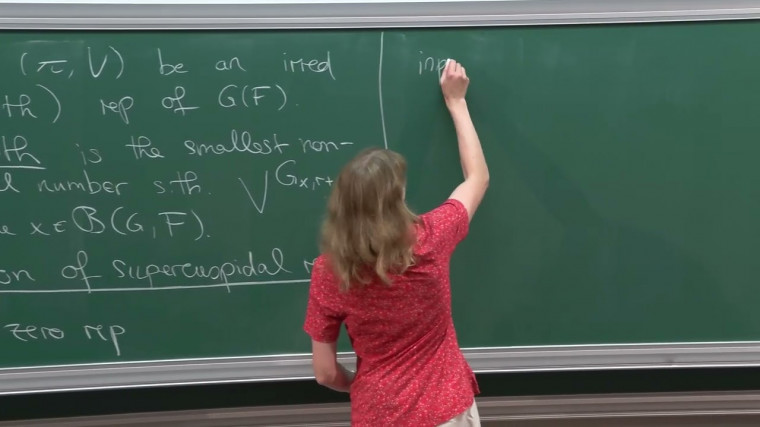 (π, V) be an irred
th) rep of G(F).
th is the smallest non-
number s.th. V^{G_{x,r+}}
x ∈ B(G, F).
on of supercuspidal
zero rep
inp